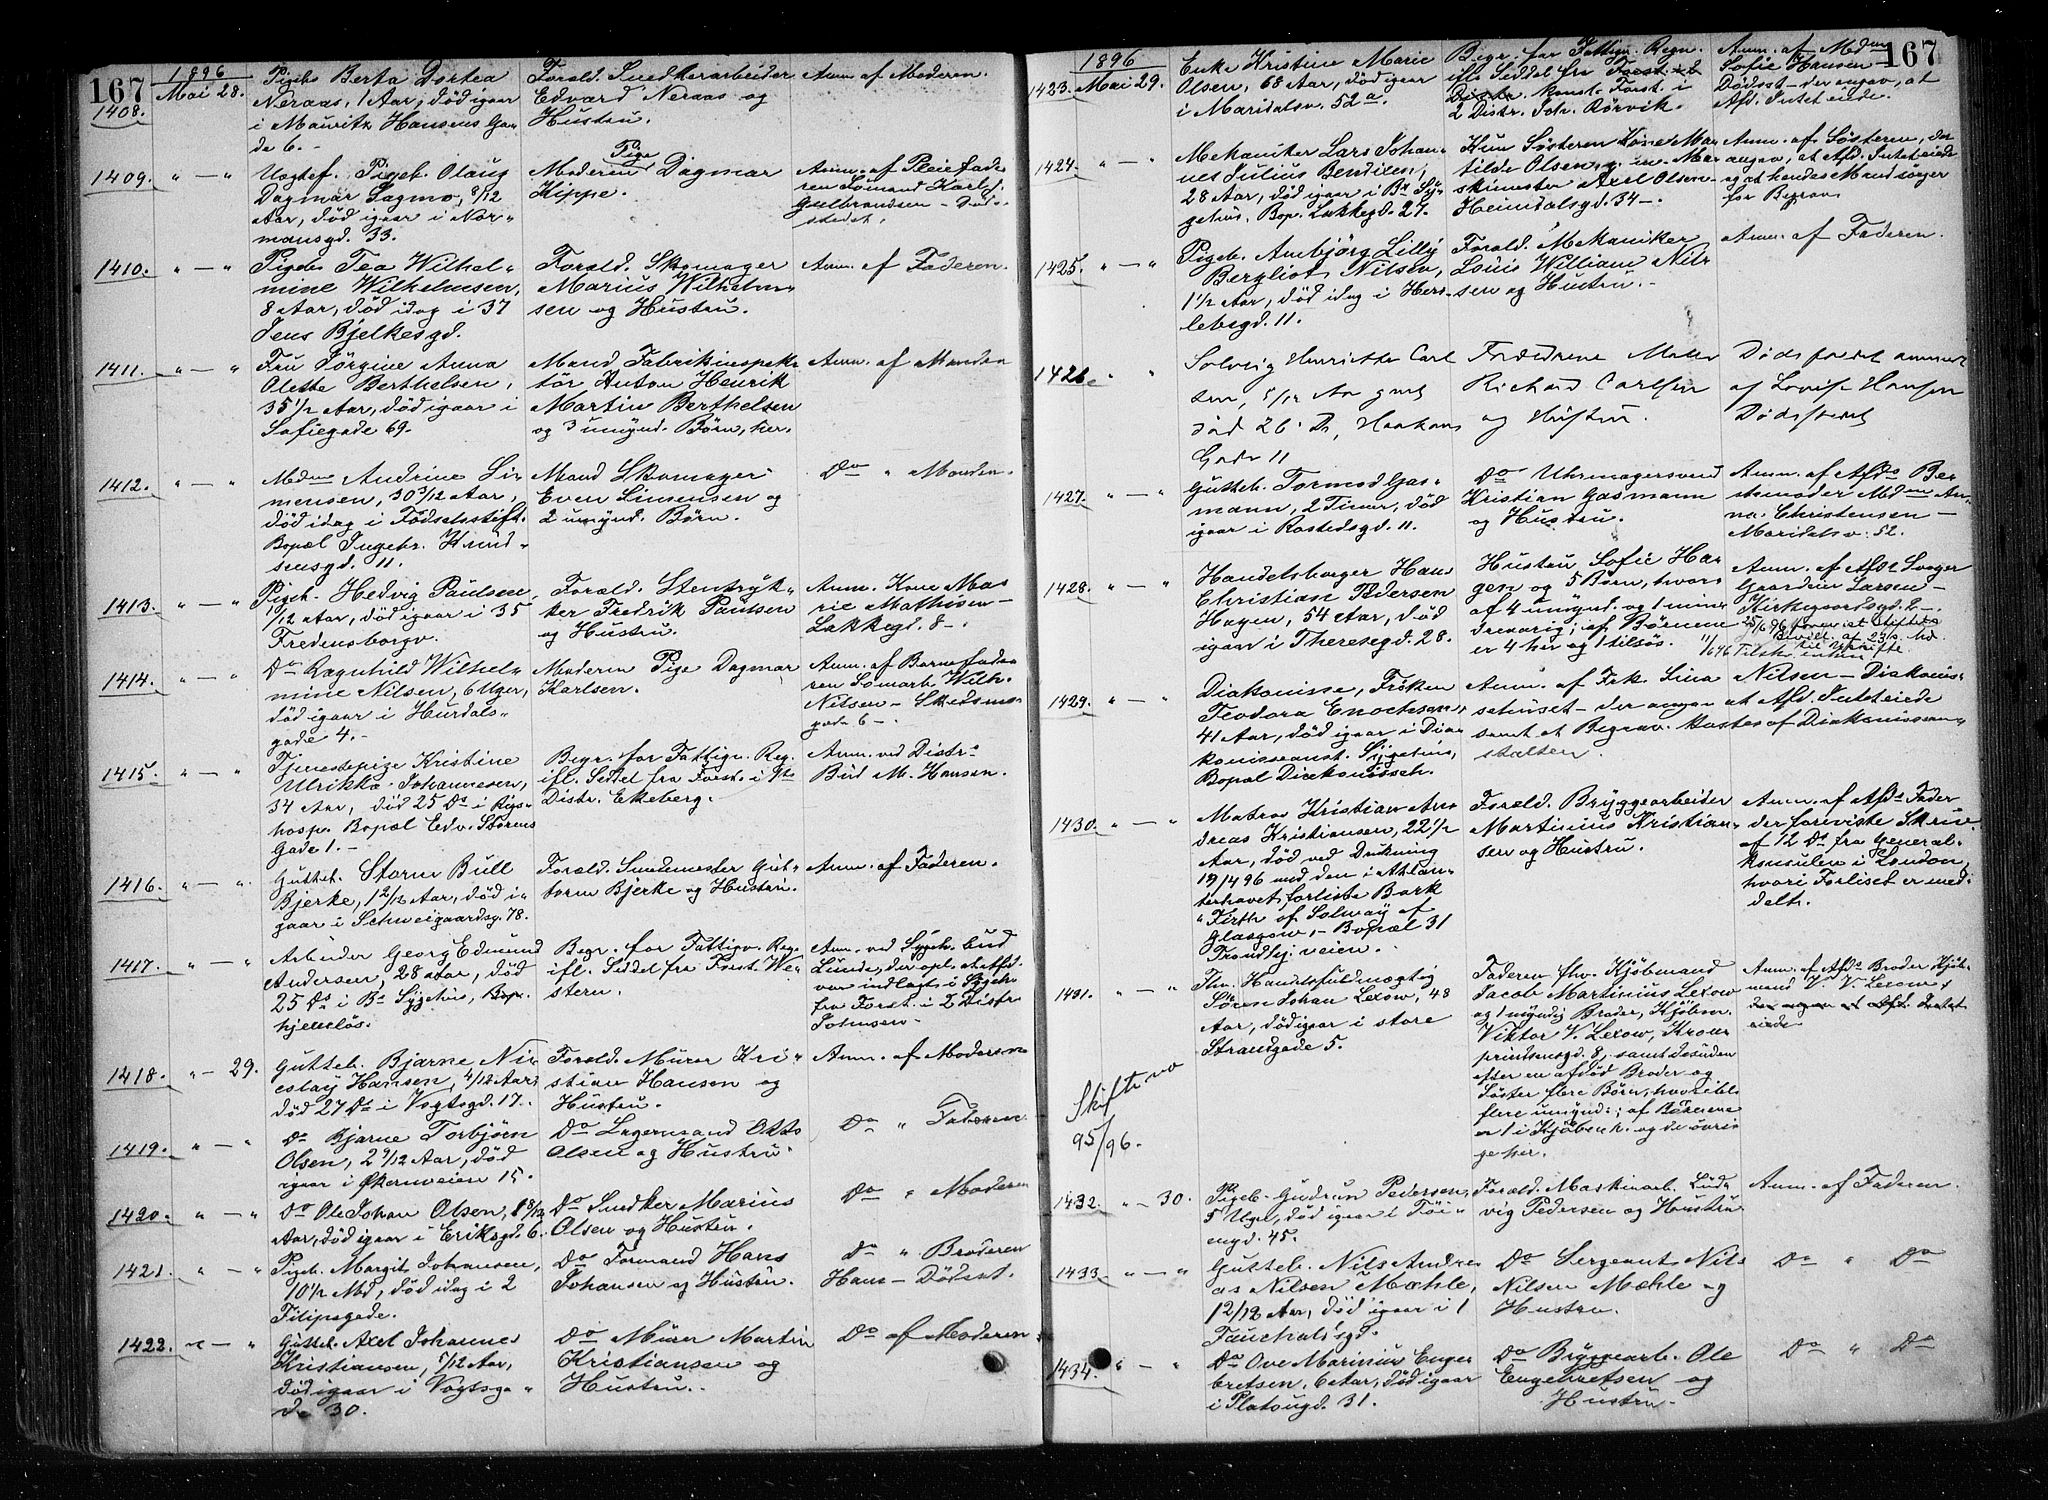 167
1896
Mai 28.
1408.
Pigeb. Berta Dortea
Neraas, 1 Aar, død igaar
i Mauritz Hansens Ga-
de 6.
Foræld. Snedkerarbeider
Edvard Neraas og
Hustru.
Anm. af Moderen.
1409. " — "
Uægtef. Pigeb. Olaug
Dagmar Sagmo, 8/12
Aar, død igaar i Nor-
mansgd. 33.
Moderen Pige Dagmar
Hippe.
Anm. af Pleiefade
ren Sømand Karl J.
Gulbrandsen - Død-
stedet.
1410. " — "
Pigeb. Tea Wilhel-
mine Wilhelmsen,
8 Aar, død idag i 37
Jens Bjelkesgd.
Foræld. Skomager
Marius Wilhelm-
sen og Hustru.
Anm. af Faderen.
1411. " — "
Fru Jørgine Anna
Olette Berthelsen,
35 1/2 Aar, død igaar i
Sofiegade 69.
Mand Fabrikinspek-
tør Anton Henrik
Martin Berthelsen
og 3 umynd. Børn, her.
Anm. af Manden
1412. " — "
Mdm Andrine Si-
mensen, 30 3/12 Aar,
død idag i Fødselsstift.
Bopæl Ingebr. Knud-
sensgd. 11.
Mand Skomager
Even Simensen og
2 umynd. Børn.
Do " Manden.
1413. " — "
Pigeb. Hedvig Paulsen,
1/12 Aar, død igaar i 35
Fredensborgv.
Foræld. Stentryk-
ker Fredrik Paulsen
og Hustru.
Anm. Kone Ma-
rie Mathisen -
Lakkegd. 8 -.
1414. " — "
Do Ragnhild Wilhel-
mine Nilsen, 6 Uger,
død igaar i Hurdals-
gade 4. -
Moderen Pige Dagmar
Karlsen.
Anm. af Barnefade
ren Sømand Wilh.
Nilsen - Skedsmo-
gade 6 -.
1415. " — "
Tjenestepige Kristine
Ulrikke Johannesen,
34 Aar, død 25 Ds i Rigs-
hosp. Bopæl Edv. Storms
Gade 1. -
Begr. for Fattigv. Reg.
ifl. Seddel fra Forst. i 9de
Distr. Ekeberg.
Anm. ved Distrs
Bud M. Hansen.
1416. " — "
Gutteb. Storm Bull
Bjerke, 1 2/12 Aar, død i-
gaar i Schweigaardsg. 78.
Foræld. Smedmester Gut-
torm Bjerke og Hustru.
Anm. af Faderen.
1417. " — "
Arbeider Georg Edmund
Andersen, 28 Aar, død
25 Ds i Bs Sygehus, Bop.
hjemløs.
Begr. for Fattigv. Regn.
ifl. Seddel fra Forst. We-
stern.
Anm. ved Sygeh. bud
Lunde, der opl. at Afd.
var indlagt i Sygeh.
fra Forst. i 2 Distr.
Johnsen -
1418. " — 29.
Gutteb. Bjarne Ni-
colay Hansen, 4/12 Aar,
død 27 Ds i Vogtsgd. 17.
Foræld. Murer Kri-
stian Hansen og
Hustru.
Anm. af Moderen
1419. " — "
Do Bjarne Torbjørn
Olsen, 2 9/12 Aar, død
igaar i Økernveien 15.
Do Lagermand Otto
Olsen og Hustru.
Do " Faderen
1420. " — "
Do Ole Johan Olsen, 1 8/12
Aar, død igaar i Eriksgd. 6.
Do Snedker Marius
Olsen og Hustru.
Do " Moderen
1421. " — "
Pigeb. Margit Johansen,
10 1/2 Md, død idag i 2
Filipsgade.
Do Formand Hans
Johansen og Hustru.
Do " Broderen
Hans - Dødsst.
1422. " — "
Gutteb. Axel Johannes
Kristiansen, 7/12 Aar,
død igaar i Vogtsga-
de 30.
Do Murer Martin
Kristiansen og
Hustru.
Do af Moderen
1896
167
1423. Mai 29.
Enke Kristine Marie
Olsen, 68 Aar, død igaar
i Maridalsv. 52 a.
Begr. for Fattigv. Regn.
ifl. Seddel fra Forst. i 2
Distr. konst. Forst. i
2 Distr. Joh. Rørvik.
Anm. af Mdm
Sofie Hansen -
Dødsst - der angav, at
Afd. Intet eiede.
1424. " — "
Mekaniker Lars Johan-
nes Julius Bendixen,
28 Aar, død igaar i Bs Sy-
gehus, Bop. Lakkegd. 27.
Kun Søsteren Kone Ma-
tilde Olsen, g. m. Ma-
skinmester Axel Olsen -
Heimdalsgd. 34 -.
Anm. af Søsteren, der
angav, at Afd. Intet eiede
og at hendes Mand sørger
for Begrav.
1425. " — "
Pigeb. Anbjørg Lilly
Bergliot Nilsen,
1 1/2 Aar, død idag i Hers-
lebsgd. 11.
Foræld. Mekaniker
Louis William Nil-
sen og Hustru. -
Anm. af Faderen.
1426 " "
Solveig Henriette Carl
sen, 5/12 Aar gml
død 26 Ds, Haakons
Gade 11
Forældrene Maler
Richard Carlsen
og Hustru.
Dødsfaldet anmeldt
af Lovise Hansen
Dødsstedet
1427. " — "
Gutteb. Tormod Gas-
mann, 2 Timer, død
igaar i Rostedsgd. 11.
Do Uhrmagersvend
Kristian Gasmann
og Hustru.
Anm. af Afds Be-
stemoder Mdm An-
na Christensen -
Maridalsv. 52.
1428. " — "
Handelsborger Hans
Christian Pedersen
Hagen, 54 Aar, død
igaar i Theresegd. 28.
Hustru Sofie Ha-
gen og 5 Børn, hvor-
af 4 umynd. og 1 min-
dreaarig; af Børnene
er 4 her og 1 tilsøs.
Anm. af Afds Svoger
Gaardeier Larsen -
Kirkegaardsgd. 2 -.
1429. " — "
Diakonisse, Frøken
Teodora Enochsen,
41 Aar, død igaar i Dia-
konisseanst. Sygehus,
Bopæl Diakonissh.
Anm. af Frk. Lina Nilsen - Diakonis-
sehuset - der angav at Afd. Intet eiede
samt at Begrav. kostes af Diakonissean-
stalten.
1430. " — "
Matros Kristian An-
dreas Kristiansen, 22 1/2
Aar, død ved Drukning
19/4 96 med den i Atlan-
terhavet forliste Bark
"Firth of Solway af
Glasgow, - Bopæl 31
Trondhj. veien. -
Foræld. Bryggearbeider
Martinius Kristian-
sen og Hustru.
Anm. af Afds Fader
der foreviste Skriv.
af 12 Ds fra General-
konsulen i London,
hvori Forliset er med-
delt.
1431. " — "
Fhv. Handelsfuldmægtig
Søren Johan Lexow, 48
Aar, død igaar i store
Strandgade 5.
Skifte no
95/96.
Faderen fhv. Kjøbmand
Jacob Martinius Lexow
og 1 myndig Broder, Kjøbm.
Viktor V. Lexow, Kron-
prinsensgd. 8, samt desuden
efter en afdød Broder og
Søster flere Børn, hvoriblt.
flere umynd.; af Børnene
er 1 i Kjøbenh. og de øvri-
ge her.
Anm. af Afds Broder Kjøb-
mand V. V. Lexow,
der angav at Afd. Intet
eiede.
1432. " — 30.
Pigeb. Gudrun Pedersen,
5 Uger, død igaar i Tøi-
engd. 45.
Foræld. Maskinarb. Lud-
vig Pedersen og Hustru
Anm. af Faderen.
1433. " — "
Gutteb. Nils Andre-
as Nilsen Mæhle,
12/12 Aar, død igaar i 1
Fauchaldsgd.
Do Sergeant Nils
Nilsen Mæhle og
Hustru.
Do " Do
1434. " — "
Do Ove Marinius Enge-
bretsen, 6 Aar, død igaar
i Platougd. 31.
Do Bryggearb. Ole
Engebretsen og
Hustru.
Do " Do